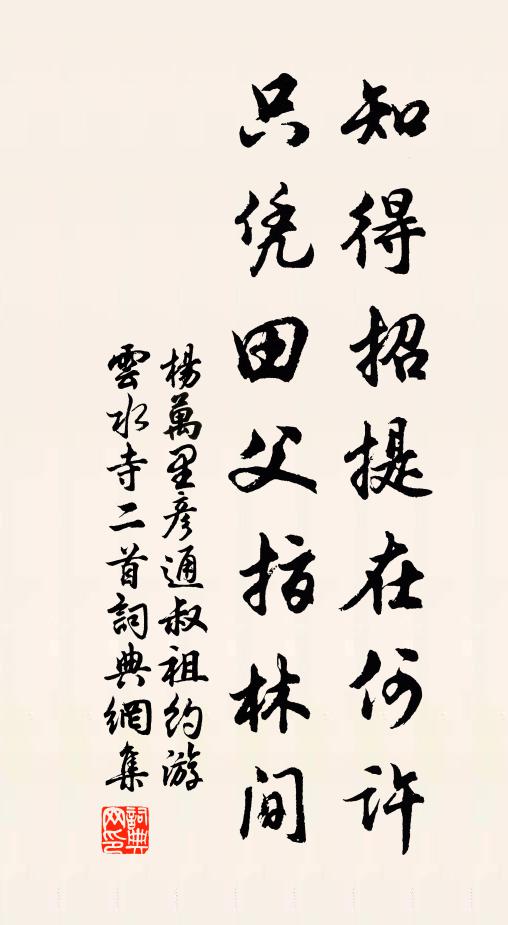 知得招提在何許
只凭田父指林間
楊萬里彦通叔祖約游
雲水寺二首詞典網集
詞典網印